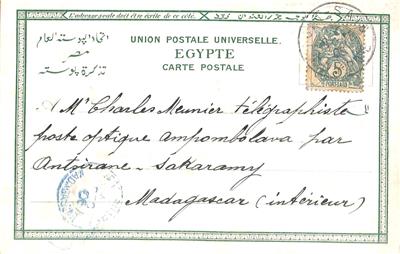 L'adresse seule doit être écrite de ce côté.
UNION POSTALE UNIVERSELLE.
EGYPTE
CARTE POSTALE
اتحاد البوستة العام
مصر
تذكرة بوستة
A Mr Charles Meunier télégraphiste
poste optique ampombolava par
Antsirane - Sakaramy
Madagascar (intérieur)